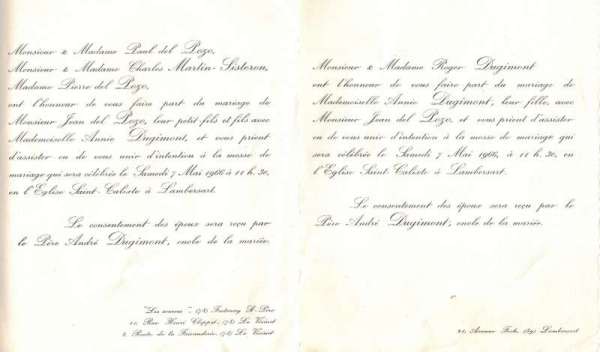 Monsieur & Madame Paul del Pozo,
Monsieur & Madame Charles Martin-Sisteron,
Madame Pierre del Pozo,
ont l'honneur de vous faire part du mariage de
Monsieur Jean del Pozo, leur petit fils et fils avec
Mademoiselle Annie Dugimont, et vous prient
d'assister ou de vous unir d'intention à la messe de
mariage qui sera célébrée le Samedi 7 Mai 1966, à 11 h. 30, en
l'Eglise Saint-Calixte à Lambersart.
Le consentement des époux sera reçu par
le Père André Dugimont, oncle de la mariée.
78) Fontenay
Rue Henri 78) Le Vésinet
2, Route de la 78) Le Vésinet
Monsieur & Madame Roger Dugimont
ont l'honneur de vous faire part du mariage de
Mademoiselle Annie Dugimont, leur fille, avec
Monsieur Jean del Pozo, et vous prient d'assister
ou de vous unir d'intention à la messe de mariage qui
sera célébrée le Samedi 7 Mai 1966, à 11 h. 30, en
l'Eglise Saint-Calixte à Lambersart.
Le consentement des époux sera reçu par le
Père André Dugimont, oncle de la mariée.
Avenue Foch, (59) Lambersart